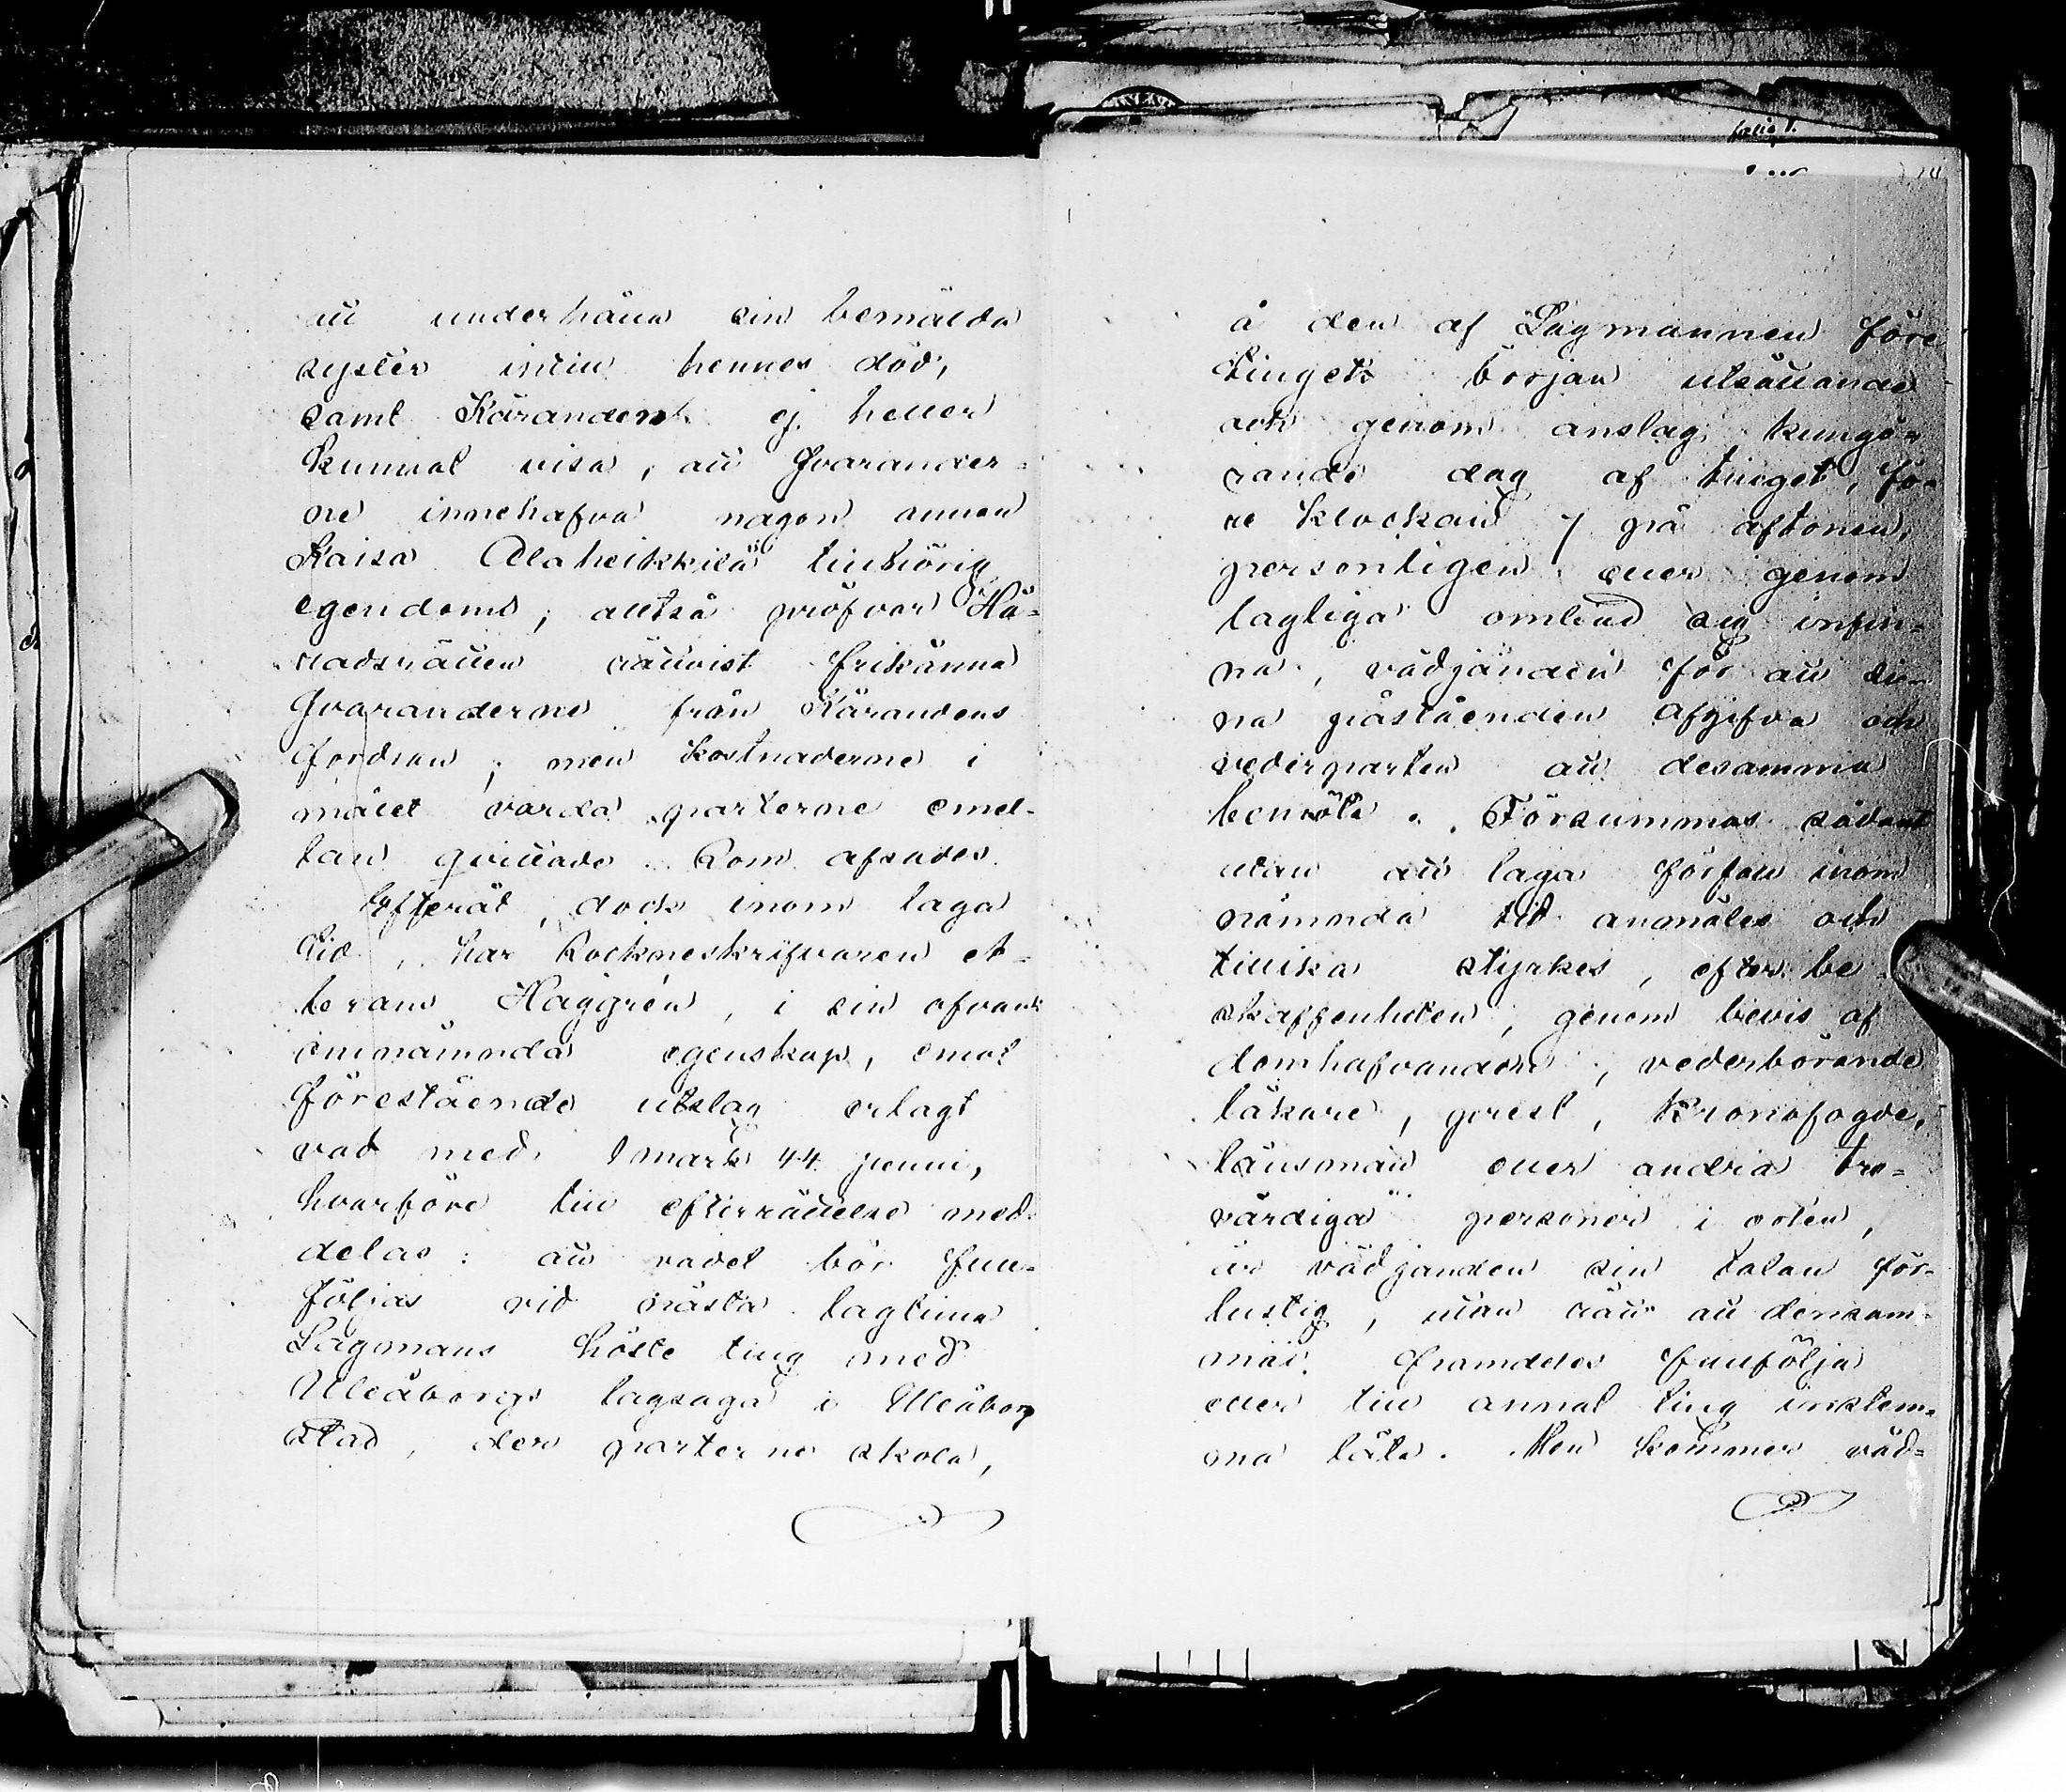 att underhålla sin bemälda
syster intill hennes död,
samt Käranden ej heller
kunnat visa, att Svarander-
ne innehafva någon annan
Kaisa Alaheikkilä tillhörig
egendom; alltså pröfvar Hä-
radsrätten rättvist frikänna
Svaranderne från Kärandens
fordran; men kostnaderne i
målet varda parterne emel-
lan qvittade. Som afsades.
Efteråt, dock inom laga
tid, har Rockneskrifvaren et-
terans Häggrén, i sin ofvan-
omnämnda egenskap, emot
förestående utslag erlagt
vad med 1 mark 44 penni,
hvarföre till efterrättelse med-
delas: att vadet bör full-
följas vid nästa lagtima
Lagmans höste ting med
Uleåborgs lagsaga i Uleåborg
stad, der parterne skola,
å den af Lagmannen före
tingets början utsättande
och genom anslag kungö-
rande dag af tinget, fö-
re klockan 7 på aftonen,
personligen eller genom
lagliga ombud sig infin-
na, vädjanden för att si-
na påståenden afgifva och
vederparten att desamma
bemöta. Försummas sådant
utan att laga förfall inom
nämnda tid anmäles och
tillika styrkes, efter be-
skaffenheten, genom bevis af
domhafvanden, vederbörande
läkare, prest, Kronofogde,
länsman eller andra tro-
värdiga personer i orten,
är vädjanden sin talan för-
lustig, utan rätt att densam-
ma framdeles fullfölja
eller till annat ting instäm-
ma låta. Men kommer väd-